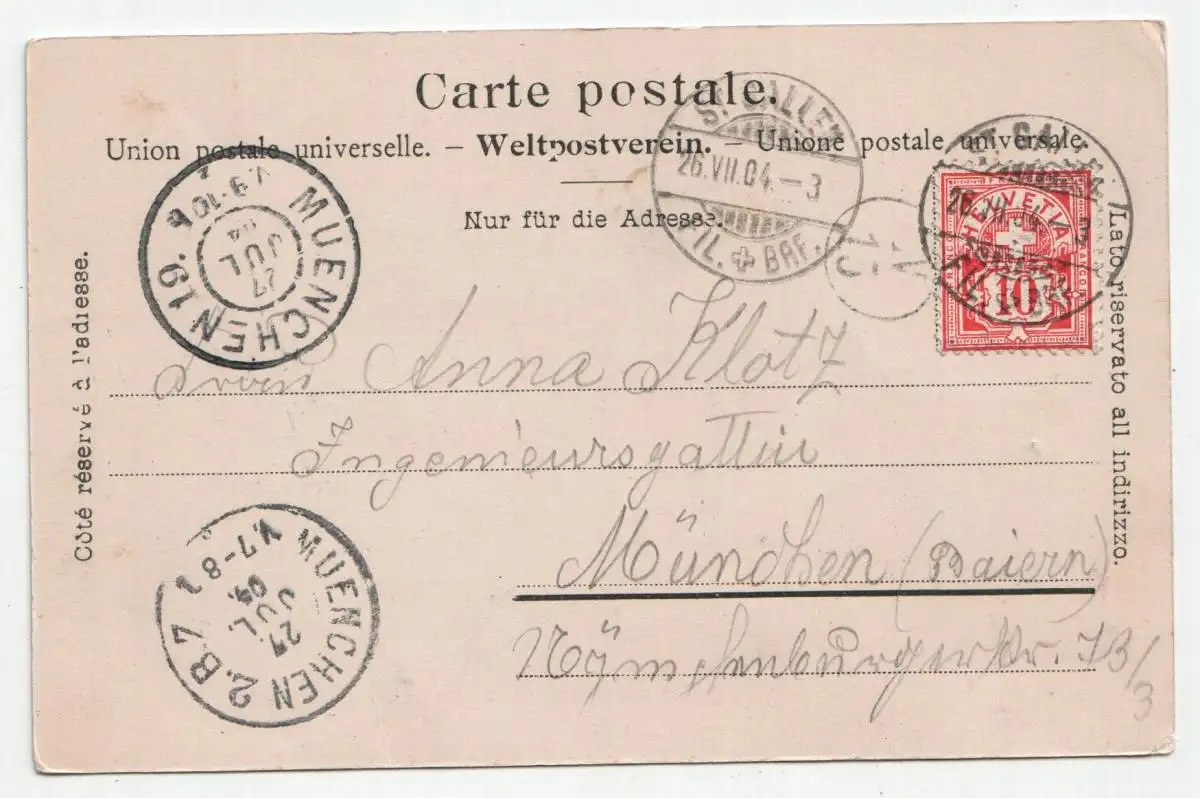 Carte postale.
Union postale universelle. – Weltpostverein. – Unione postale universale.
Nur für die Adresse.
Côté réservé à l'adresse.
Lato riservato all indirizzo.
ST. GALLEN
26.VII.04.–3
FIL. BRF.
HELVETIA
FRANCO
10
MUENCHEN 19.
V.9-10
27
JUL
04
Anna Klotz
Ingenieursgattin
München (Baiern)
Nÿmphenburgerstr. 73/3
MUENCHEN 2.B.Z.
V.7-8
27
JUL.
04.